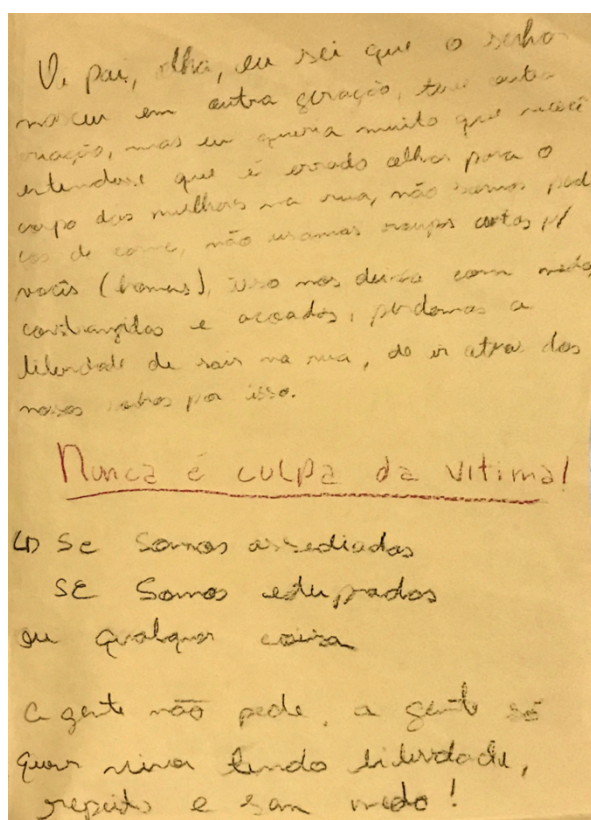 Oi pai, olha, eu sei que o senho
nasceu em outra geração, teve outra
criação, mas eu queria muito que você
entendesse que é errado olhar para o
corpo das mulheres na rua, não somos peda
ços de carne, não usamos roupas curtas p/
vocês (homens), isso nos deixa com medo,
constrangidas e acoadas, perdemos a
liberdade de sair na rua, de ir atras dos
nossos sonhos por isso.
Nunca é culpa da vitima!
↳ Se Somos assediadas
SE Somos estupradas
ou qualquer coisa
a gente não pede, a gente só
quer viver tendo liberdade,
respeito e sem medo!